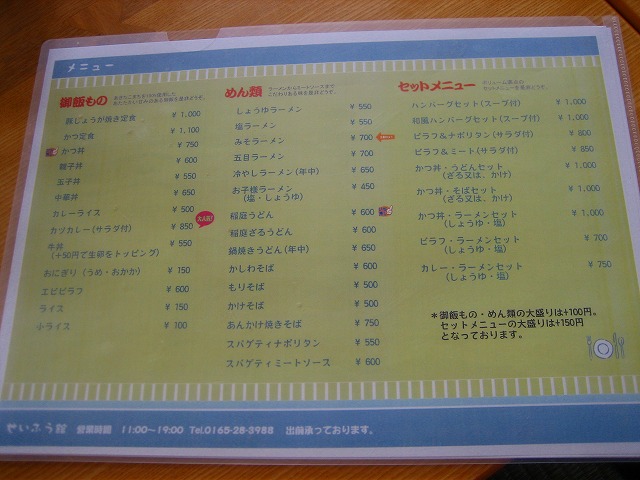 メニュー
御飯もの
豚しょうが焼き定食 ¥ 1,000
かつ定食 ¥ 1,100
かつ丼 ¥ 750
親子丼 ¥ 600
玉子丼 ¥ 550
中華丼 ¥ 650
カレーライス ¥ 500
カツカレー(サラダ付) ¥ 850
牛丼 ¥ 550
(+50円で生卵をトッピング)
おにぎり(うめ・おかか) ¥ 150
エビピラフ ¥ 600
ライス ¥ 150
小ライス ¥ 100
めん類
しょうゆラーメン ¥ 550
塩ラーメン ¥ 550
みそラーメン ¥ 700
五目ラーメン ¥ 700
冷やしラーメン(年中) ¥ 650
お子様ラーメン ¥ 450
(塩・しょうゆ)
稲庭うどん ¥ 600
稲庭ざるうどん ¥ 600
鍋焼きうどん(年中) ¥ 650
かしわそば ¥ 600
もりそば ¥ 500
かけそば ¥ 500
あんかけ焼きそば ¥ 750
スパゲティナポリタン ¥ 550
スパゲティミートソース ¥ 600
セットメニュー
ハンバーグセット(スープ付) ¥ 1,000
和風ハンバーグセット(スープ付) ¥ 1,000
ピラフ&ナポリタン(サラダ付) ¥ 800
ピラフ&ミート(サラダ付) ¥ 850
かつ丼・うどんセット ¥ 1,000
(ざる又は、かけ)
かつ丼・そばセット ¥ 1,000
(ざる又は、かけ)
かつ丼・ラーメンセット ¥ 1,000
(しょうゆ・塩)
ピラフ・ラーメンセット ¥ 700
(しょうゆ・塩)
カレー・ラーメンセット ¥ 750
(しょうゆ・塩)
*御飯もの・めん類の大盛りは+100円。
セットメニューの大盛りは+150円
となっております。
営業時間 11:00~19:00 Tel.0165-28-3988 出前承っております。